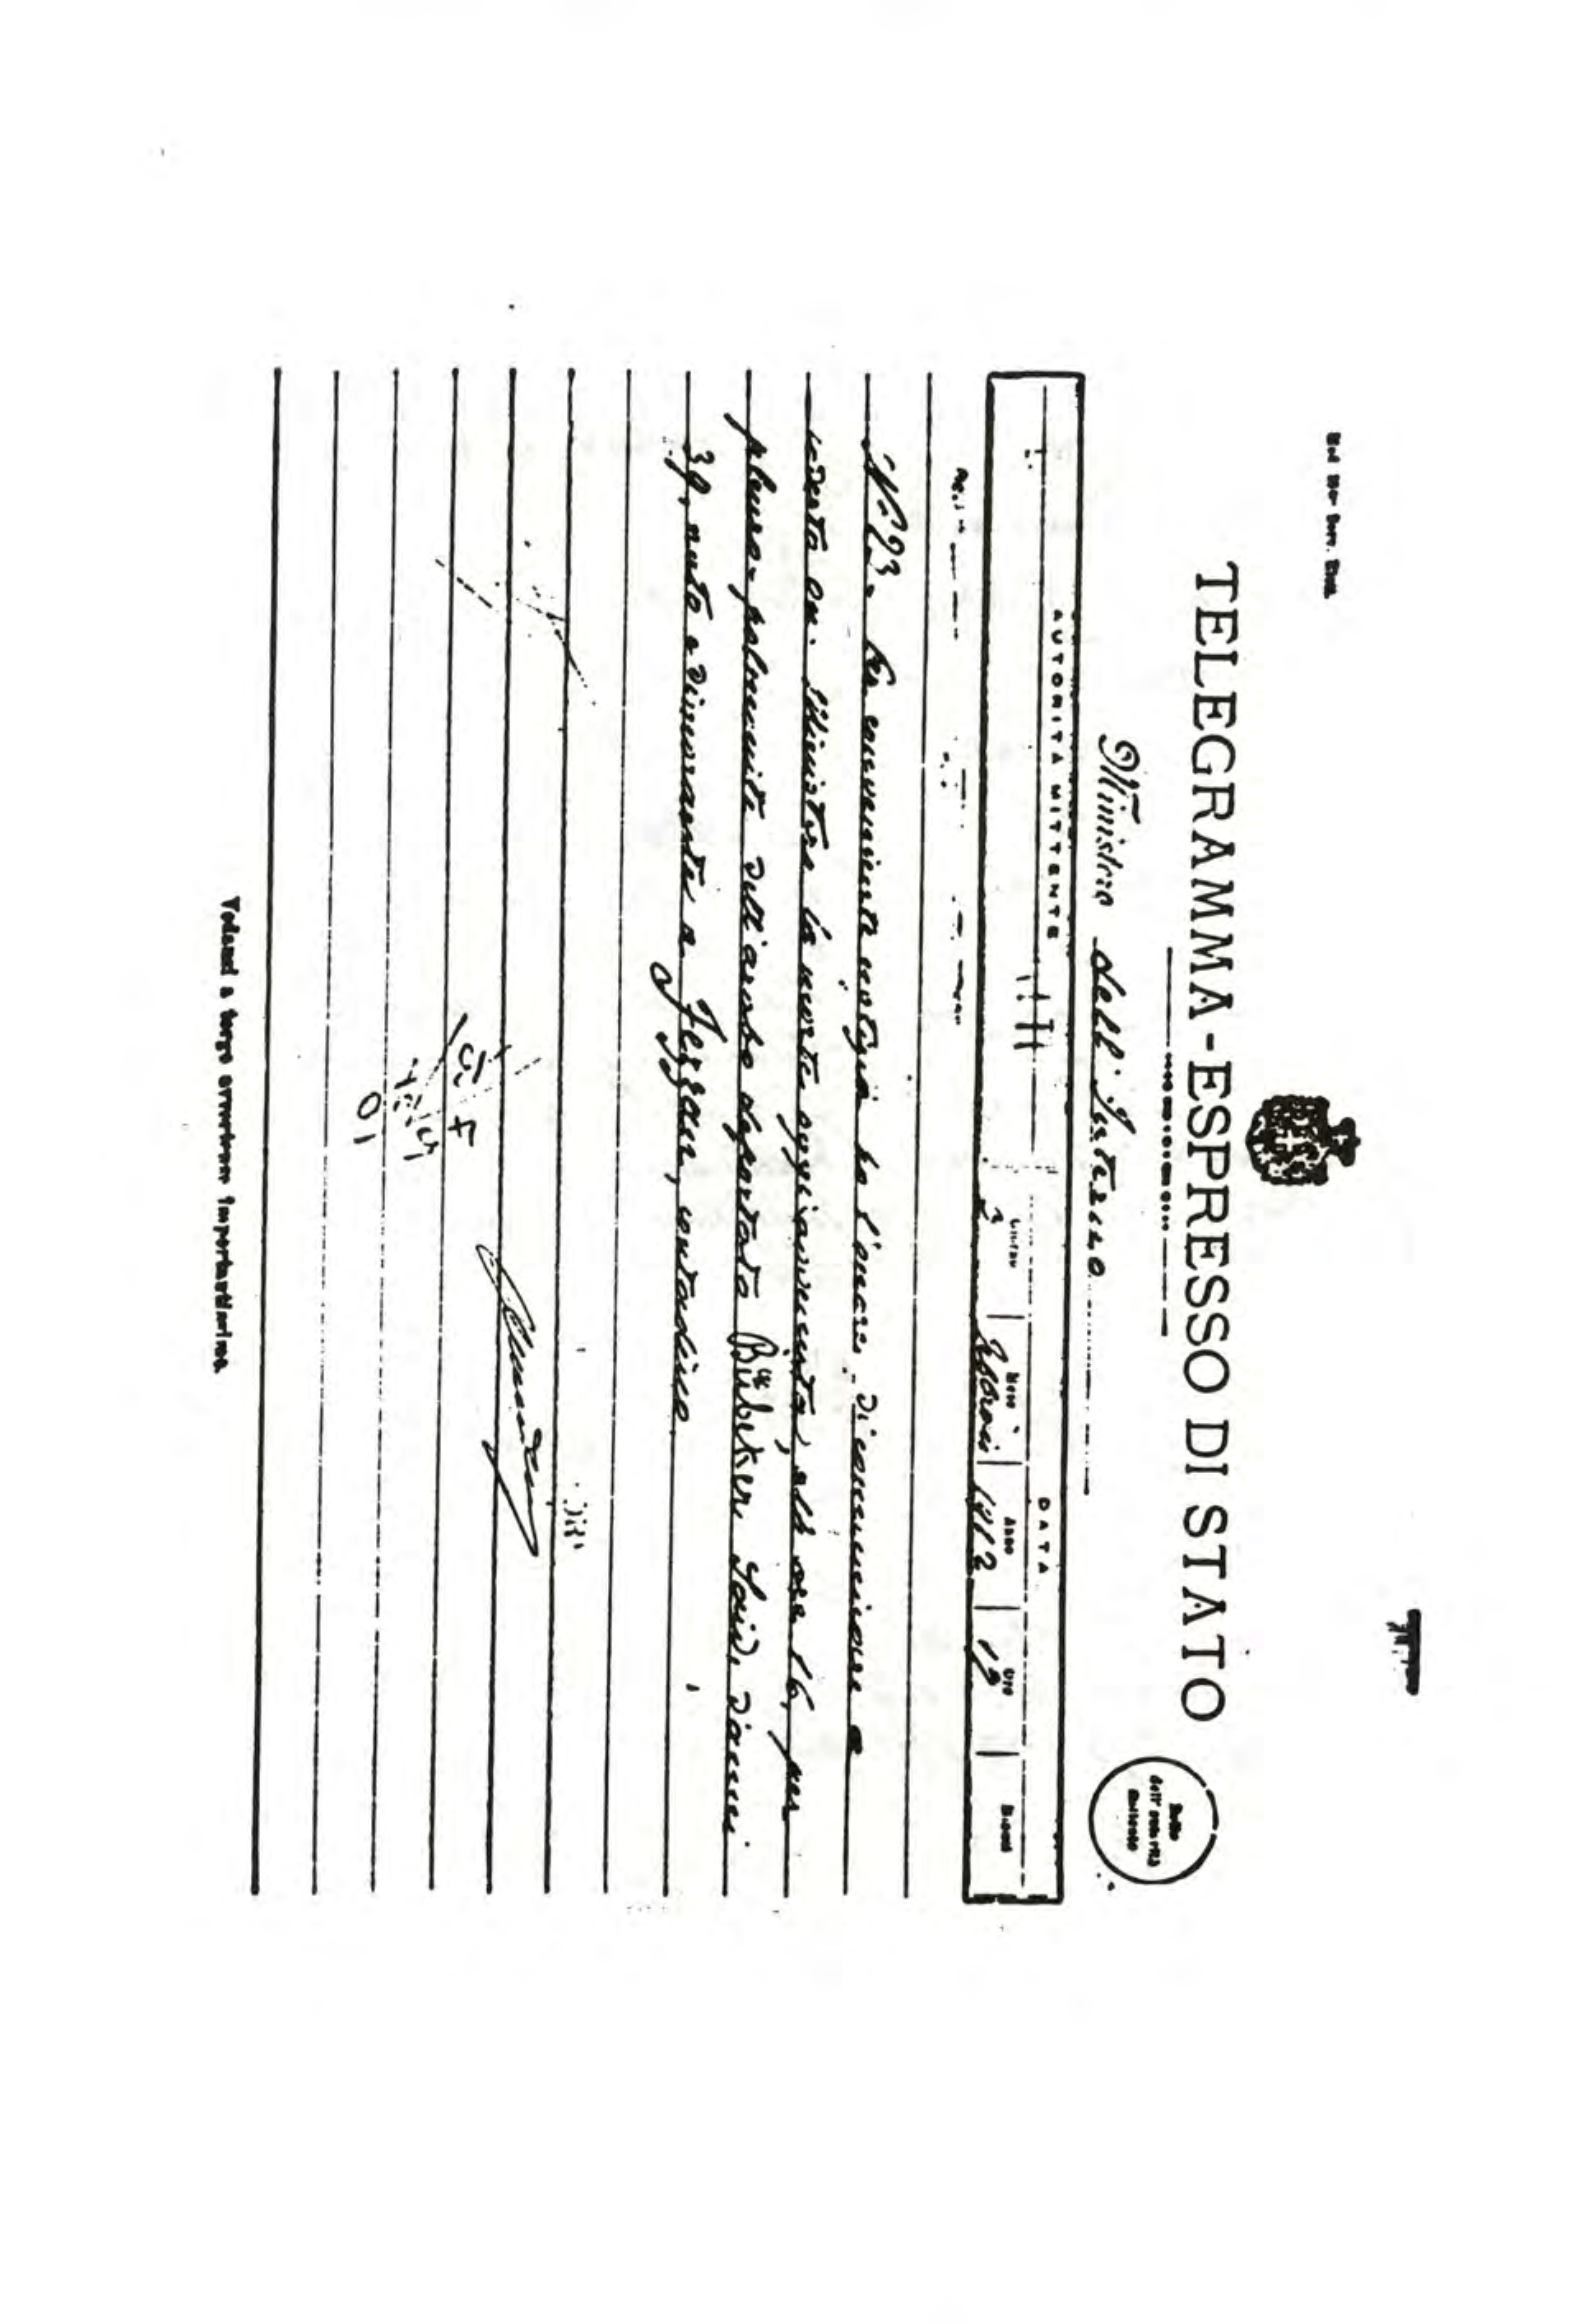 Mod.
TELEGRAMMA-ESPRESSO DI STATO
Bollo
dell'autorità
Ministero dell'Interno
AUTORITÀ MITTENTE
DATA
Giorno Mese Anno Ore
3 1912 19
N. 23. Per conveniente notizia ho l'onore di comunicare a
codesto on. Ministero la morte oggi avvenuta, alle ore 16, per
pleuro-polmonite dell'arabo deportato Bübeker Said, d'anni
39, nato e dimorante a Fezzan, contadino.
Vedansi a tergo avvertenze importantissime